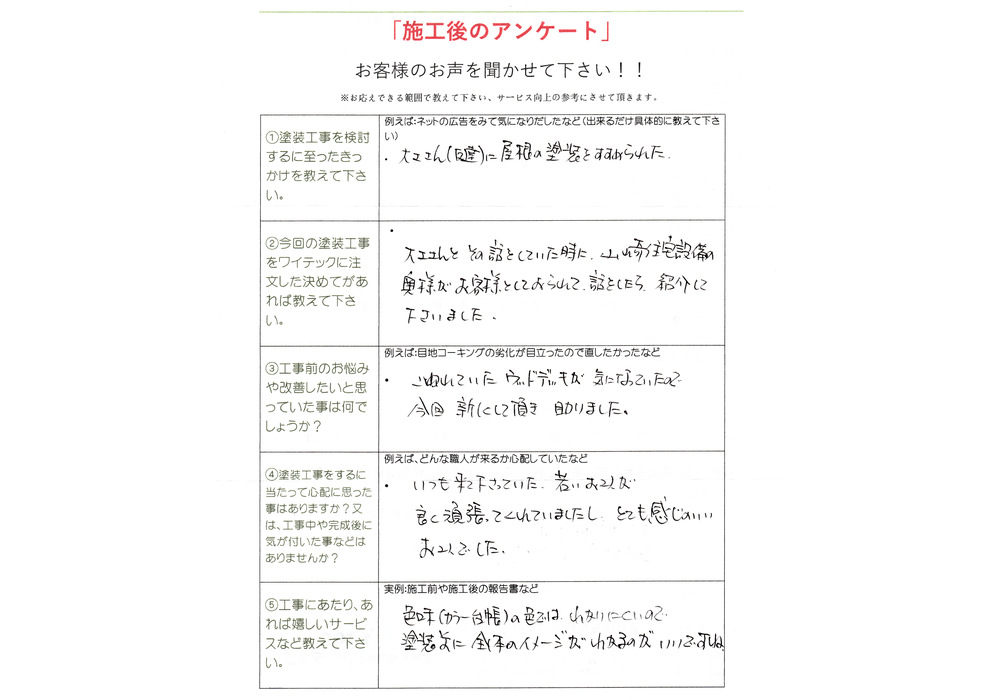 「施工後のアンケート」
お客様のお声を聞かせて下さい！！
※お応えできる範囲で教えて下さい、サービス向上の参考にさせて頂きます。
①塗装工事を検討
するに至ったきっ
かけを教えて下さ
い。
例えば:ネットの広告をみて気になりだしたなど(出来るだけ具体的に教えて下さ
い)
・大工さん(日建)に屋根の塗装をすすめられた.
②今回の塗装工事
をワイテックに注
文した決めてがあ
れば教えて下さ
い。
・
大工さんと その話をしていた時に、山崎住宅設備の
奥様がお客様としておられて、話をしたら 紹介して
下さいました.
③工事前のお悩み
や改善したいと思
っていた事は何で
しょうか？
例えば:目地コーキングの劣化が目立ったので直したかったなど
・こわれていた ウッドデッキが 気になっていたので
今回 新にして頂き 助りました。
④塗装工事をするに
当たって心配に思った
事はありますか？又
は、工事中や完成後に
気が付いた事などは
ありませんか？
例えば、どんな職人が来るか心配していたなど
・いつも来て下さっていた、若いお２人が
良く頑張ってくれていましたし、とても感じのいい
お２人でした.
⑤工事にあたり、あ
れば嬉しいサービ
スなど教えて下さ
い。
実例:施工前や施工後の報告書など
色味(カラー台帳)の色では、わかりにくいので
塗装前に 全体のイメージが わかるのが いいですね.